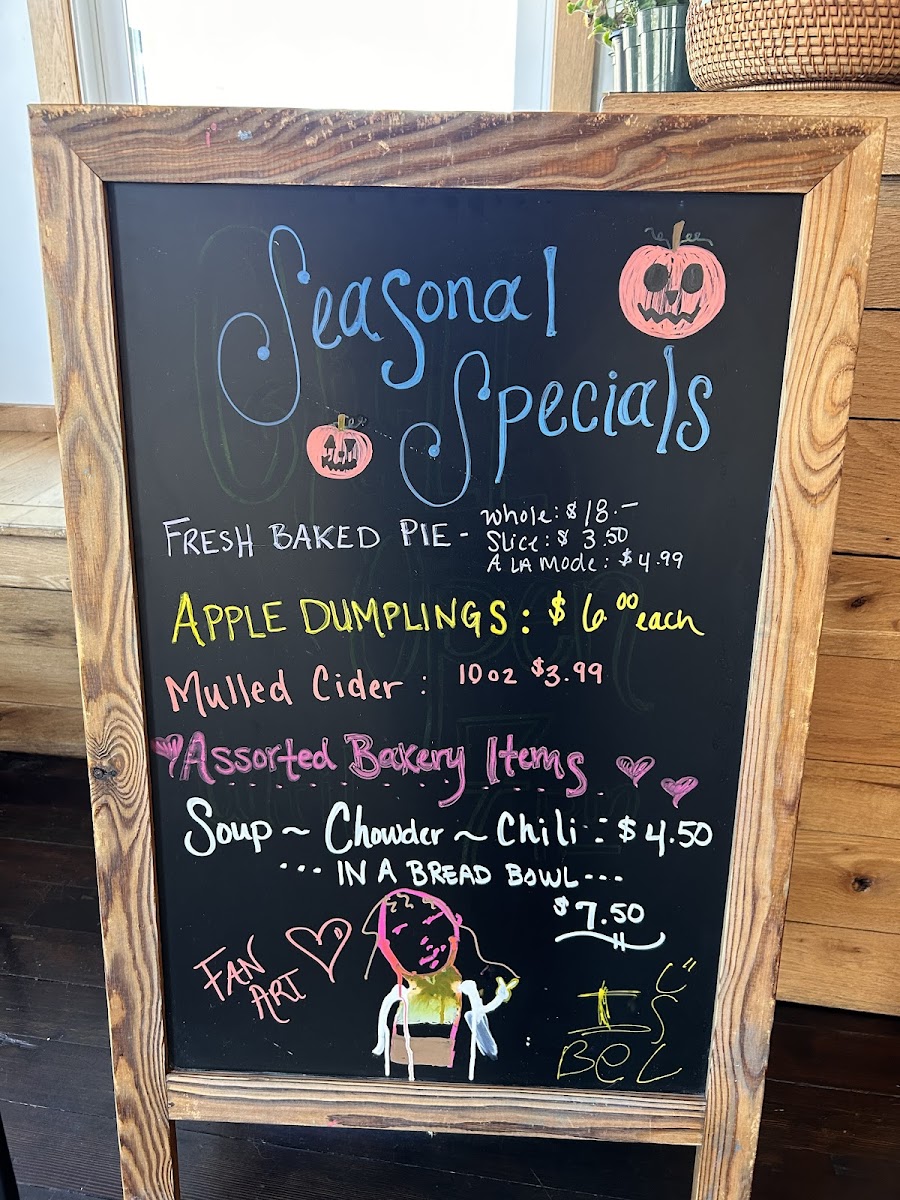 Seasonal
Specials
FRESH BAKED PIE - whole: $18.-
Slice: $3.50
A LA MODE: $4.99
APPLE DUMPLINGS: $6.00 each
Mulled Cider: 10oz $3.99
Assorted Bakery Items
Soup ~ Chowder ~ Chili: $4.50
... IN A BREAD BOWL ...
$7.50
FAN
ART
IS
BEL